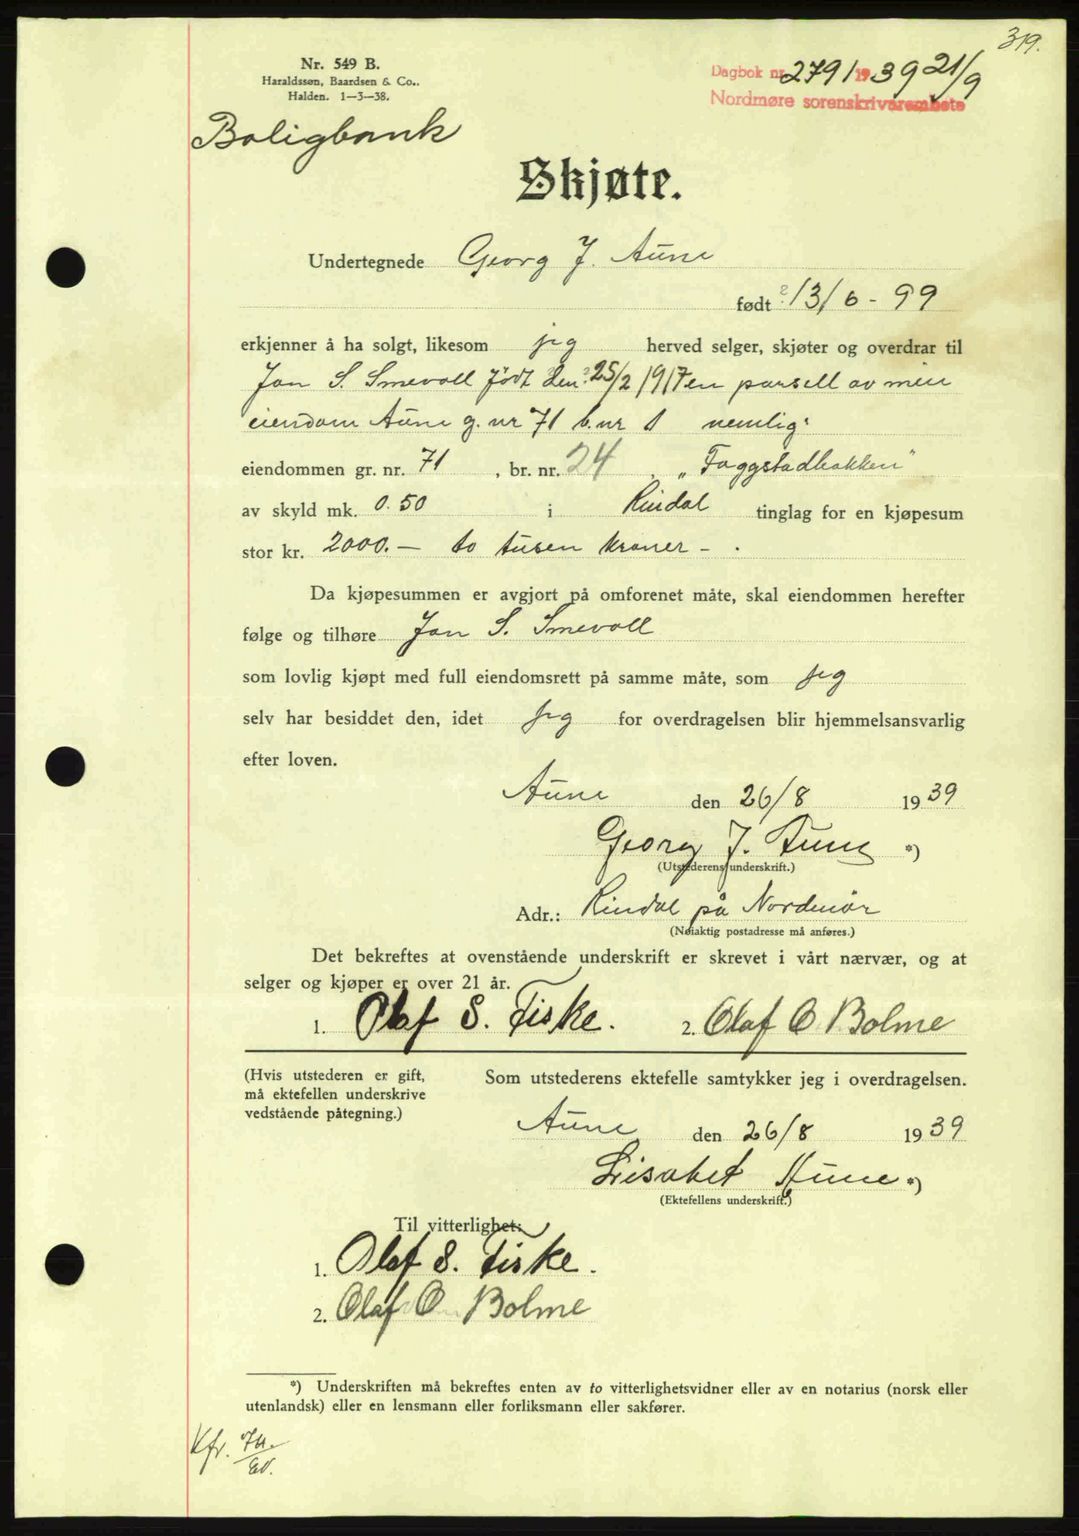 319.
Nr. 549 B.
Haraldssøn, Baardsen & Co..
Halden. 1—3—38.
Dagbok nr. 2791 1939 21/9
Nordmøre sorenskriverembete
Boligbank
Skjøte.
Undertegnede Georg J. Aune
født 13/6 - 99
erkjenner å ha solgt, likesom jeg herved selger, skjøter og overdrar til
Jon S. Smevoll født den 25/2 1917 en parsell av min
eiendom Aune g. nr 71 b. nr 1 nemlig:
eiendommen gr. nr. 71 , br. nr. 24 , „Faggstadbakken"
av skyld mk. 0.50 i Rindal tinglag for en kjøpesum
stor kr. 2000.— to tusen kroner - .
Da kjøpesummen er avgjort på omforenet måte, skal eiendommen herefter
følge og tilhøre Jon S. Smevoll
som lovlig kjøpt med full eiendomsrett på samme måte, som jeg
selv har besiddet den, idet jeg for overdragelsen blir hjemmelsansvarlig
efter loven.
Aune den 26/8 1939
Georg J. Aune *)
(Utstederens underskrift.)
Adr.: Rindal på Nordmør
(Nøiaktig postadresse må anføres.)
Det bekreftes at ovenstående underskrift er skrevet i vårt nærvær, og at
selger og kjøper er over 21 år.
1. Olaf S. Fiske. 2. Olaf O Bolme
(Hvis utstederen er gift,
må ektefellen underskrive
vedstående påtegning.)
Som utstederens ektefelle samtykker jeg i overdragelsen.
Aune den 26/8 1939
Lisabet Aune *)
(Ektefellens underskrift.)
Til vitterlighet:
1. Olaf S. Fiske.
2. Olaf O Bolme
*) Underskriften må bekreftes enten av to vitterlighetsvidner eller av en notarius (norsk eller
utenlandsk) eller en lensmann eller forliksmann eller sakfører.
Kfr.